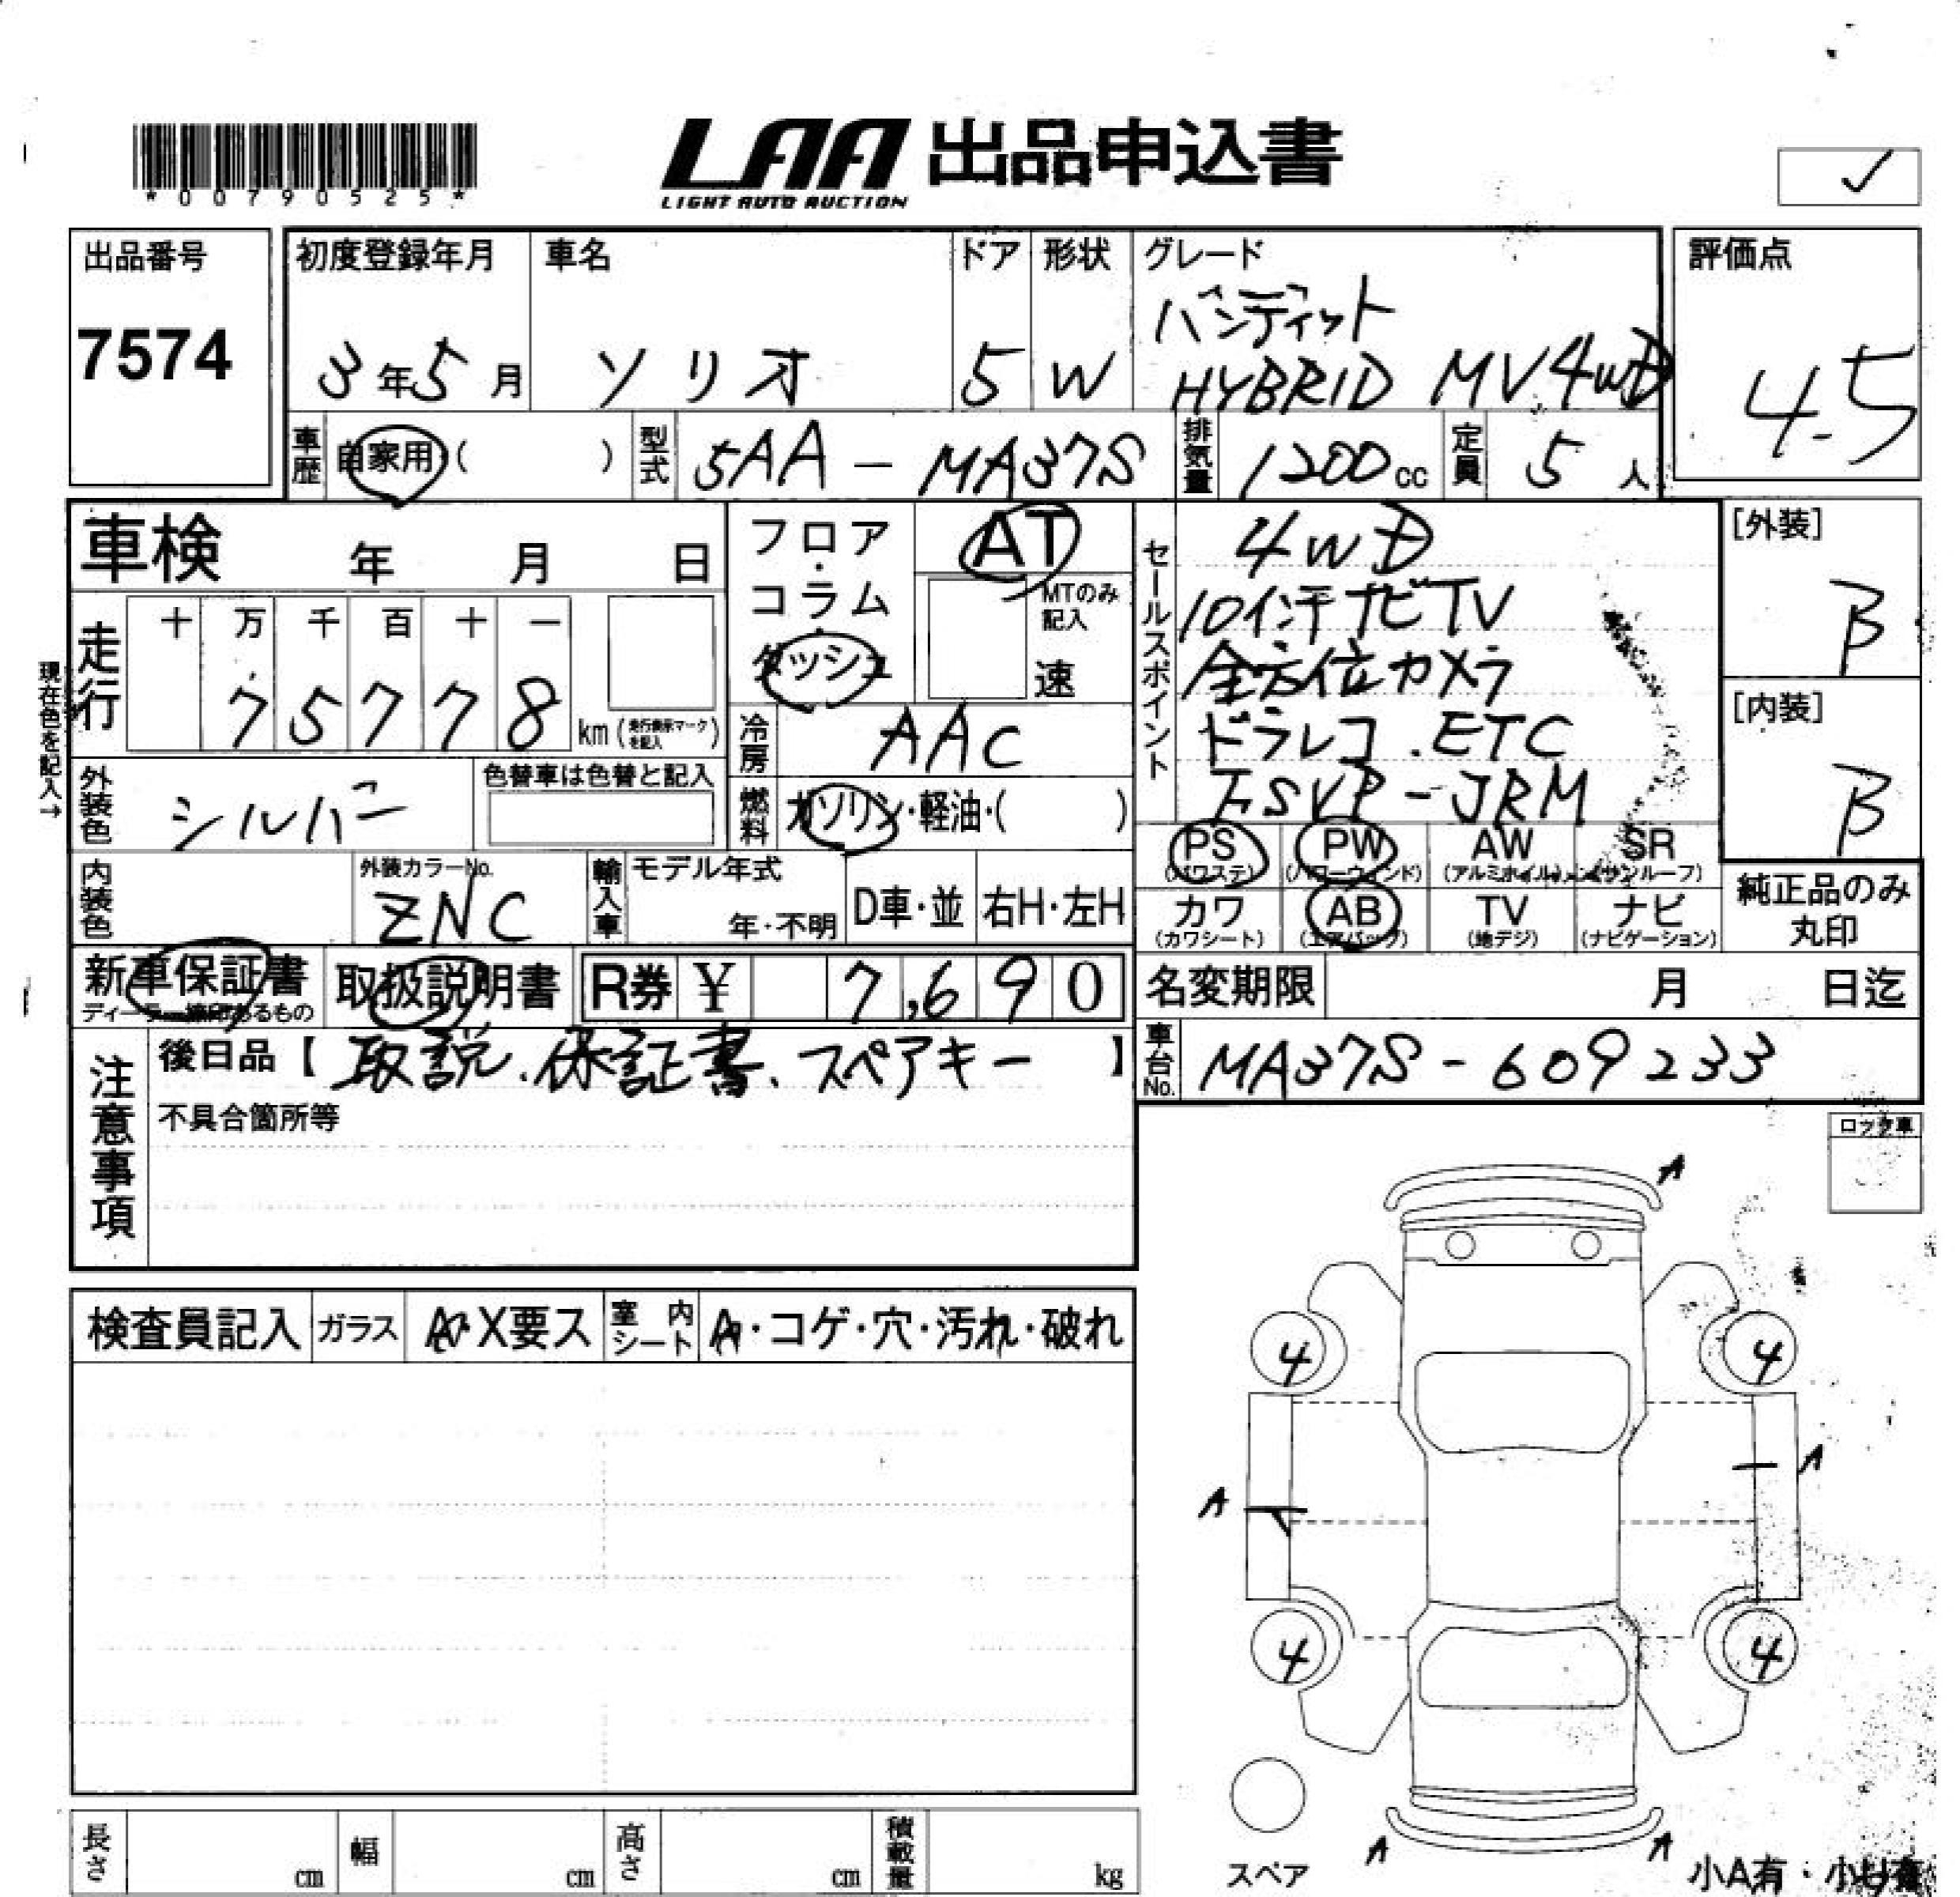 *00790525*
LAA 出品申込書
LIGHT AUTO AUCTION
✓
出品番号
7574
初度登録年月
3年5月
車名
ソリオ
ドア
5
形状
W
グレード
バンディット
HYBRID MV4WD
評価点
4.5
車歴
自家用 ( )
型式
5AA - MA37S
排気量
1200cc
定員
5人
車検 年 月 日
フロア・コラム・ダッシュ
AT
MTのみ記入
速
セールスポイント
4WD
10インチナビTV
全方位カメラ
ドラレコ.ETC
FSVP-JRM
[外装]
B
[内装]
B
現在色を記入→
走行
十 万 千 百 十 一
7 5 7 7 8 km (走行表示マークを記入)
冷房
AAC
外装色
シルバー
色替車は色替と記入
燃料
ガソリン・軽油・( )
PS (パワステ)
PW (パワーウィンド)
AW (アルミホイル)
SR (サンルーフ)
内装色
外装カラーNo.
ZNC
輸入車
モデル年式
年・不明
D車・並
右H・左H
カワ (カワシート)
AB (エアバッグ)
TV (地デジ)
ナビ (ナビゲーション)
純正品のみ丸印
新車保証書
取扱説明書
R券 ¥ 7,690
名変期限 月 日迄
注意事項
後日品【取説、保証書、スペアキー】
不具合箇所等
車台No.
MA37S-609233
検査員記入
ガラス
A・X要ス
室内シート
A・コゲ・穴・汚れ・破れ
A
4
4
A
A
4
4
A
A
スペア
小A有・小U有
長さ cm
幅 cm
高さ cm
積載量 kg